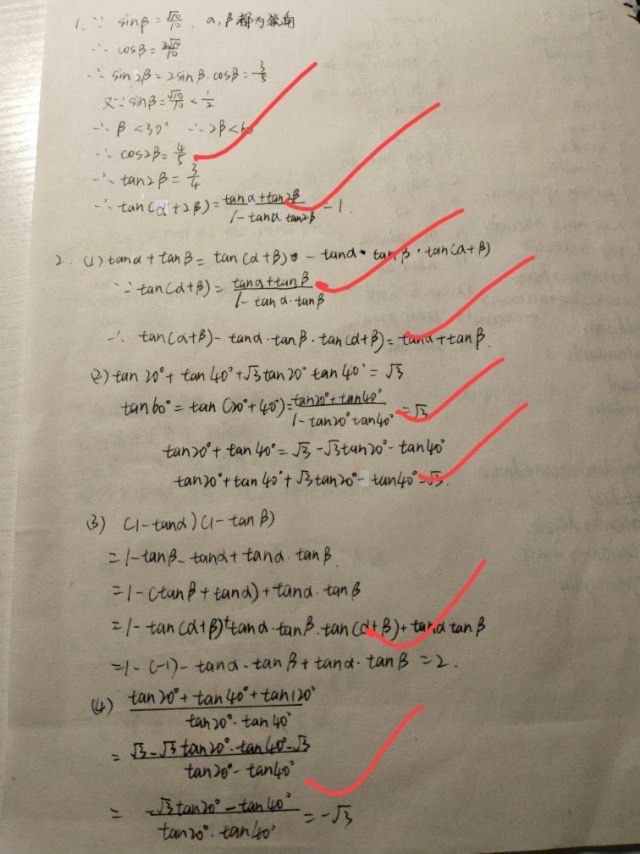 1. ∵ sinβ = √10/10 , α, β都为锐角
∴ cosβ = 3√10/10
∴ sin2β = 2sinβ·cosβ = 3/5
又∵ sinβ = √10/10 < 1/2
∴ β < 30° ∴ 2β < 60°
∴ cos2β = 4/5
∴ tan2β = 3/4
∴ tan(α+2β) = (tanα+tan2β)/(1-tanα tan2β) = 1.
2. (1) tanα + tanβ = tan(α+β) - tanα·tanβ·tan(α+β)
∵ tan(α+β) = (tanα+tanβ)/(1-tanα·tanβ)
∴ tan(α+β) - tanα·tanβ·tan(α+β) = tanα + tanβ.
(2) tan20° + tan40° + √3tan20° tan40° = √3
tan60° = tan(20°+40°) = (tan20°+tan40°)/(1-tan20° tan40°) = √3
tan20° + tan40° = √3 - √3tan20° - tan40°
tan20° + tan40° + √3tan20° - tan40° = √3.
(3) (1-tanα)(1-tanβ)
= 1-tanβ-tanα+tanα·tanβ
= 1-(tanβ+tanα)+tanα·tanβ
= 1-tan(α+β)+tanα·tanβ·tan(α+β)+tanα tanβ
= 1-(-1)-tanα·tanβ+tanα·tanβ = 2.
(4) (tan20°+tan40°+tan120°)/(tan20°·tan40°)
= (√3-√3tan20°·tan40°-√3)/(tan20°-tan40°)
= (-√3tan20°-tan40°)/(tan20°·tan40°) = -√3